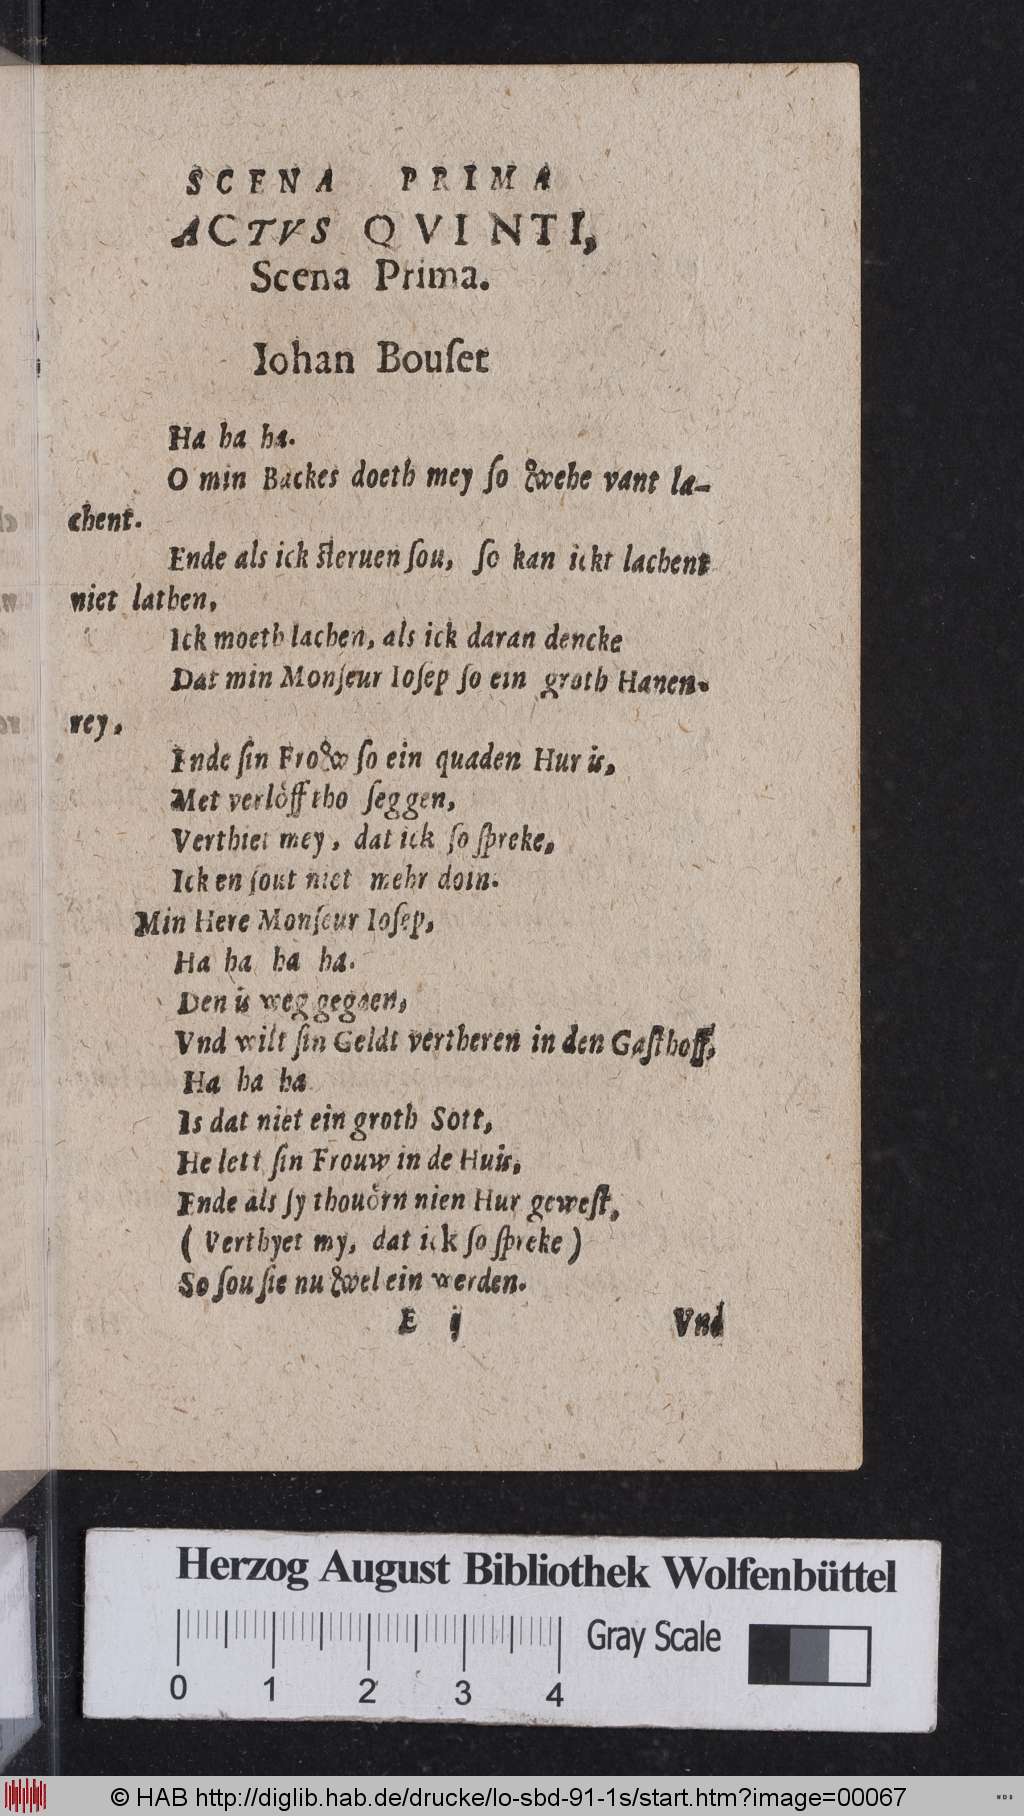 SCENA PRIMA
ACTVS QVINTI,
Scena Prima.
Iohan Bouſet
Ha ha ha.
O min Backes doeth mey ſo zwehe vant la-
chent.
Ende als ick ſteruen ſou, ſo kan ickt lachent
niet lathen,
Ick moeth lachen, als ick daran dencke
Dat min Monſeur Ioſep ſo ein groth Hanen-
rey,
Ende ſin Frozw ſo ein quaden Hur is,
Met verlöff tho ſeggen,
Verthiet mey, dat ick ſo ſpreke,
Ick en ſout niet mehr doin.
Min Here Monſeur Ioſep,
Ha ha ha ha.
Den is weg gegaen,
Vnd wilt ſin Geldt vertheren in den Gaſthoff,
Ha ha ha
Is dat niet ein groth Sott,
He lett ſin Frouw in de Huis,
Ende als ſy thouörn nien Hur geweſt,
( Verthyet my, dat ick ſo ſpreke )
So ſou ſie nu zwel ein werden.
E ij Vnd
Herzog August Bibliothek Wolfenbüttel
Gray Scale
0 1 2 3 4
© HAB http://diglib.hab.de/drucke/lo-sbd-91-1s/start.htm?image=00067